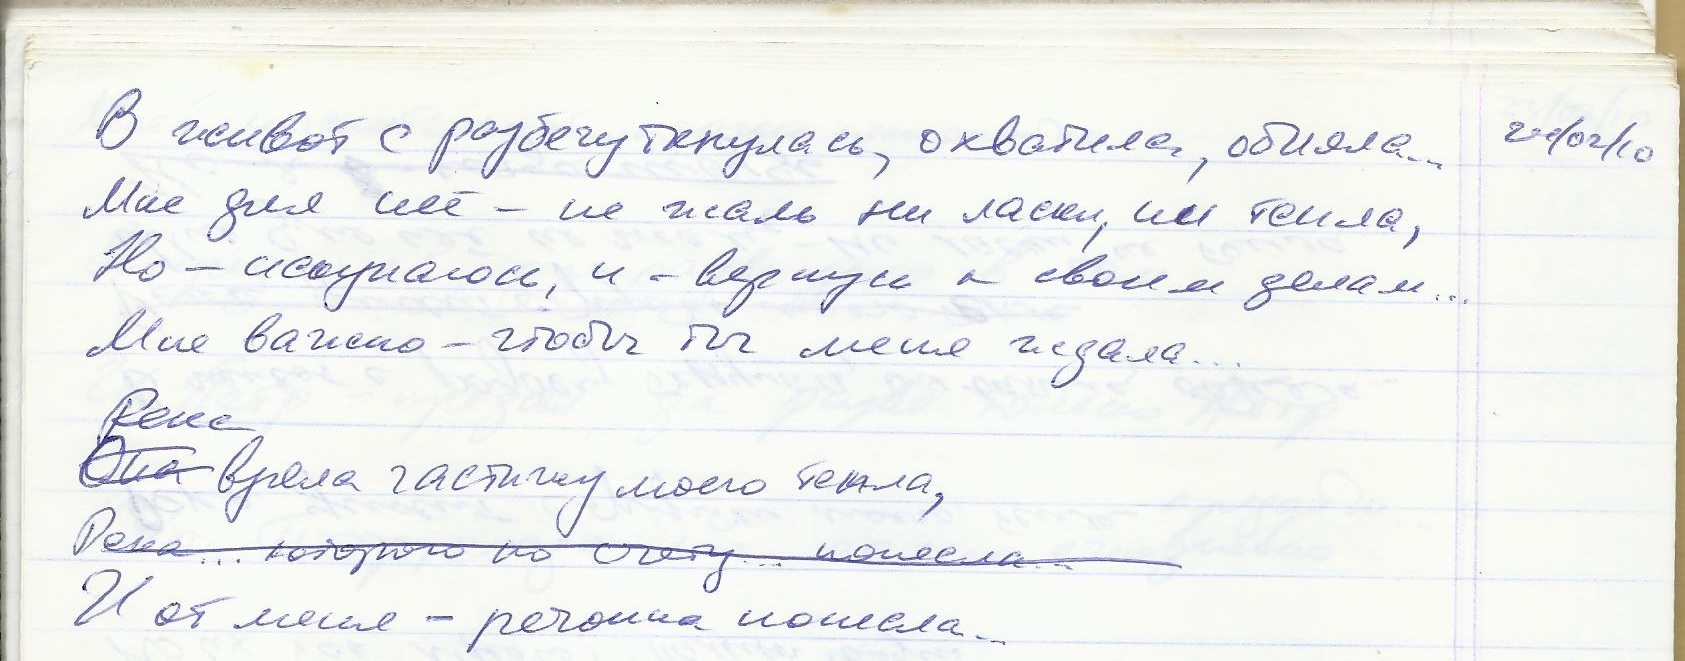 В живот с разбегу ткнулась, охватила, обняла... 22/02/10
Мне для неё - не жаль ни ласки, ни тепла,
Но - искупаюсь, и - вернусь к своим делам...
Мне важно - чтобы ты меня ждала...
Река
Она взяла частичку моего тепла,
Река... которого по счету... понесла...
И от меня - речонка понесла...